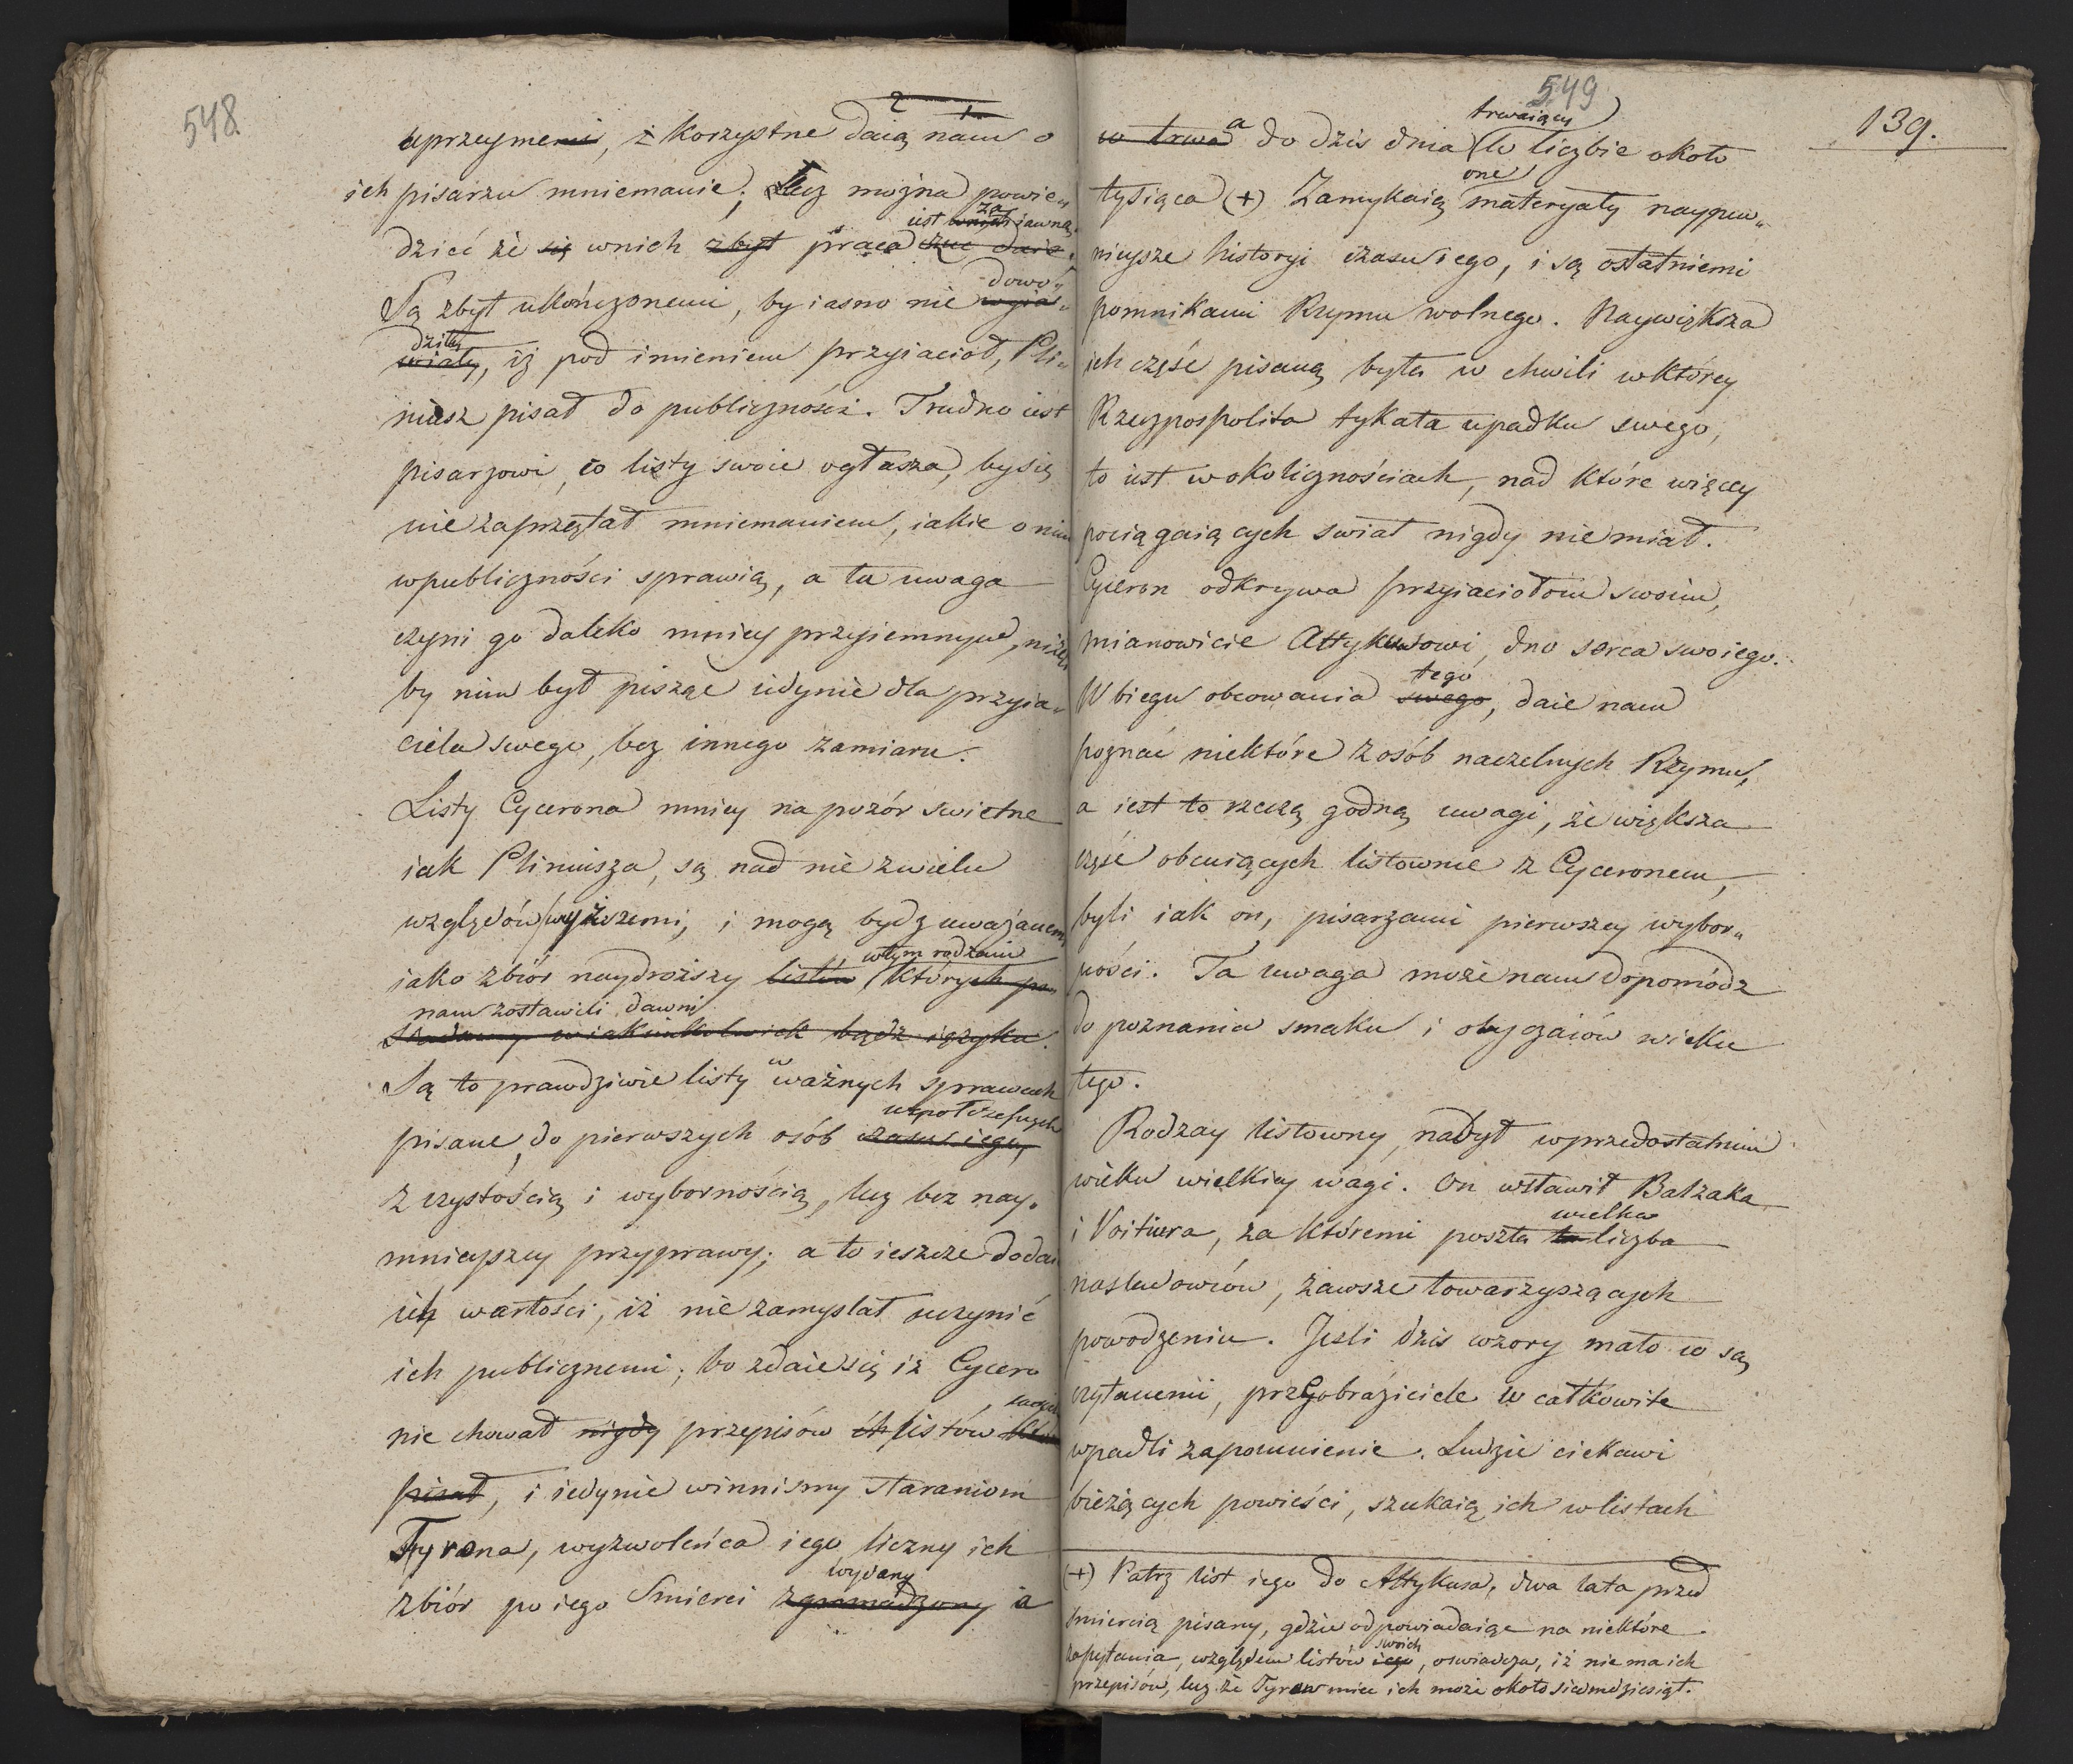 548.
2 1
uprzeymemi, i korzystne daią nam o
ich pisarzu mniemanie; Lecz można powie„
iest za iawna
dzieć że się wnich zbyt praca czuć daie.
dowo„
Są zbyt ukończonemi, by iasno nie wyia„
dziły
wiały, iż pod imieniem przyiacioł, Pli„
niusz pisał do publiczności. Trudno iest
pisarzowi, co listy swoie ogłasza, by się
nie zaprzątał mniemaniem, iakie o nim
wpubliczności sprawią, a ta uwaga
czyni go daleko mniey przyiemnym, niżeli
by nim był pisząc iedynie dla przyia„
ciela swego, bez innego zamiaru.
Listy Cycerona mniey na pozór swietne
iak Pliniusza, są nad nie zwielu
względów wyższemi, i mogą bydz uważanemi
wtym rodzaiu
iako zbiór naydroższy listów, których po„
nam zostawili dawni
siadamy w iakimkolwiek bądź ięzyku.
Są to prawdziwie listy w ważnych sprawach
wspołczesnych
pisane, do pierwszych osób czasu iego,
z czystością i wybornością, lecz bez nay„
mnieyszey przyprawy; a to ieszcze dodaie
ich wartości, iż nie zamyslał uczynić
ich publicznemi; bo zdaie się iż Cycero
swoich
nie chował nigdy przepisów ich listów które
pisał, i iedynie winnismy staraniom
Tyrona, wyzwoleńca iego liczny ich
wydany
zbiór po iego Smierci zgromadzony a
549
139.
trwaiący
w trwa a do dzis dnia w liczbie około
one
tysiąca (+) Zamykaią materyały naypew„
nieysze historyi czasu iego, i są ostatniemi
pomnikami Rzymu wolnego. Naywiększa
ich częśc pisaną była w chwili wktórey
Rzeczpospolita tykała upadku swego,
to iest wokolicznościach, nad które więcey
pociągaiących swiat nigdy nie miał.
Cyceron odkrywa przyiaciołom swoim,
mianowicie Attykusowi, dno serca swoiego.
tego
W biegu obcowania swego, daie nam
poznać niektóre z osób naczelnych Rzymu,
a iest to rzeczą godną uwagi, że większa
częśc obcuiących listownie z Cyceronem,
byli iak on, pisarzami pierwszey wybor„
ności. Ta uwaga może nam dopomódz
do poznania smaku i obyczaiów wieku
tego.
Rodzay listowny, nabył wprzedostatnim
wieku wielkiey wagi. On wsławił Balzaka
wielka
i Voitiura, za któremi poszła ta liczba
nasladowców, zawsze towarzyszących
powodzeniu. Jeśli dzis wzory mało co są
czytanemi, przeobraziciele w całkowite
wpadli zapomnienie. Ludzie ciekawi
bieżących powieści, szukaią ich wlistach
(+) Patrz list iego do Attykusa, dwa lata przed
śmiercią pisany, gdzie odpowiadaiąc na niektóre
swoich
zapytania, względem listów iego, oswiadcza, iż nie ma ich
przepisów, lecz że Tyron miec ich może około siedmdziesiąt.